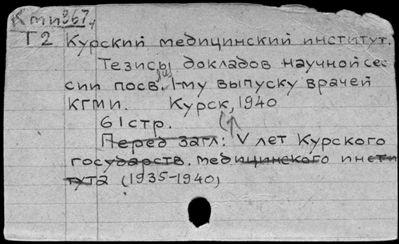 Кми 267.
Т2 Курский медицинский институт.
Тезисы докладов научной сес
сии посв. 1-му выпуску врачей
КГМИ. Курск, 1940
61 стр.
Перед загл: V лет Курского
государств. медицинского инсти
тута (1935-1940)